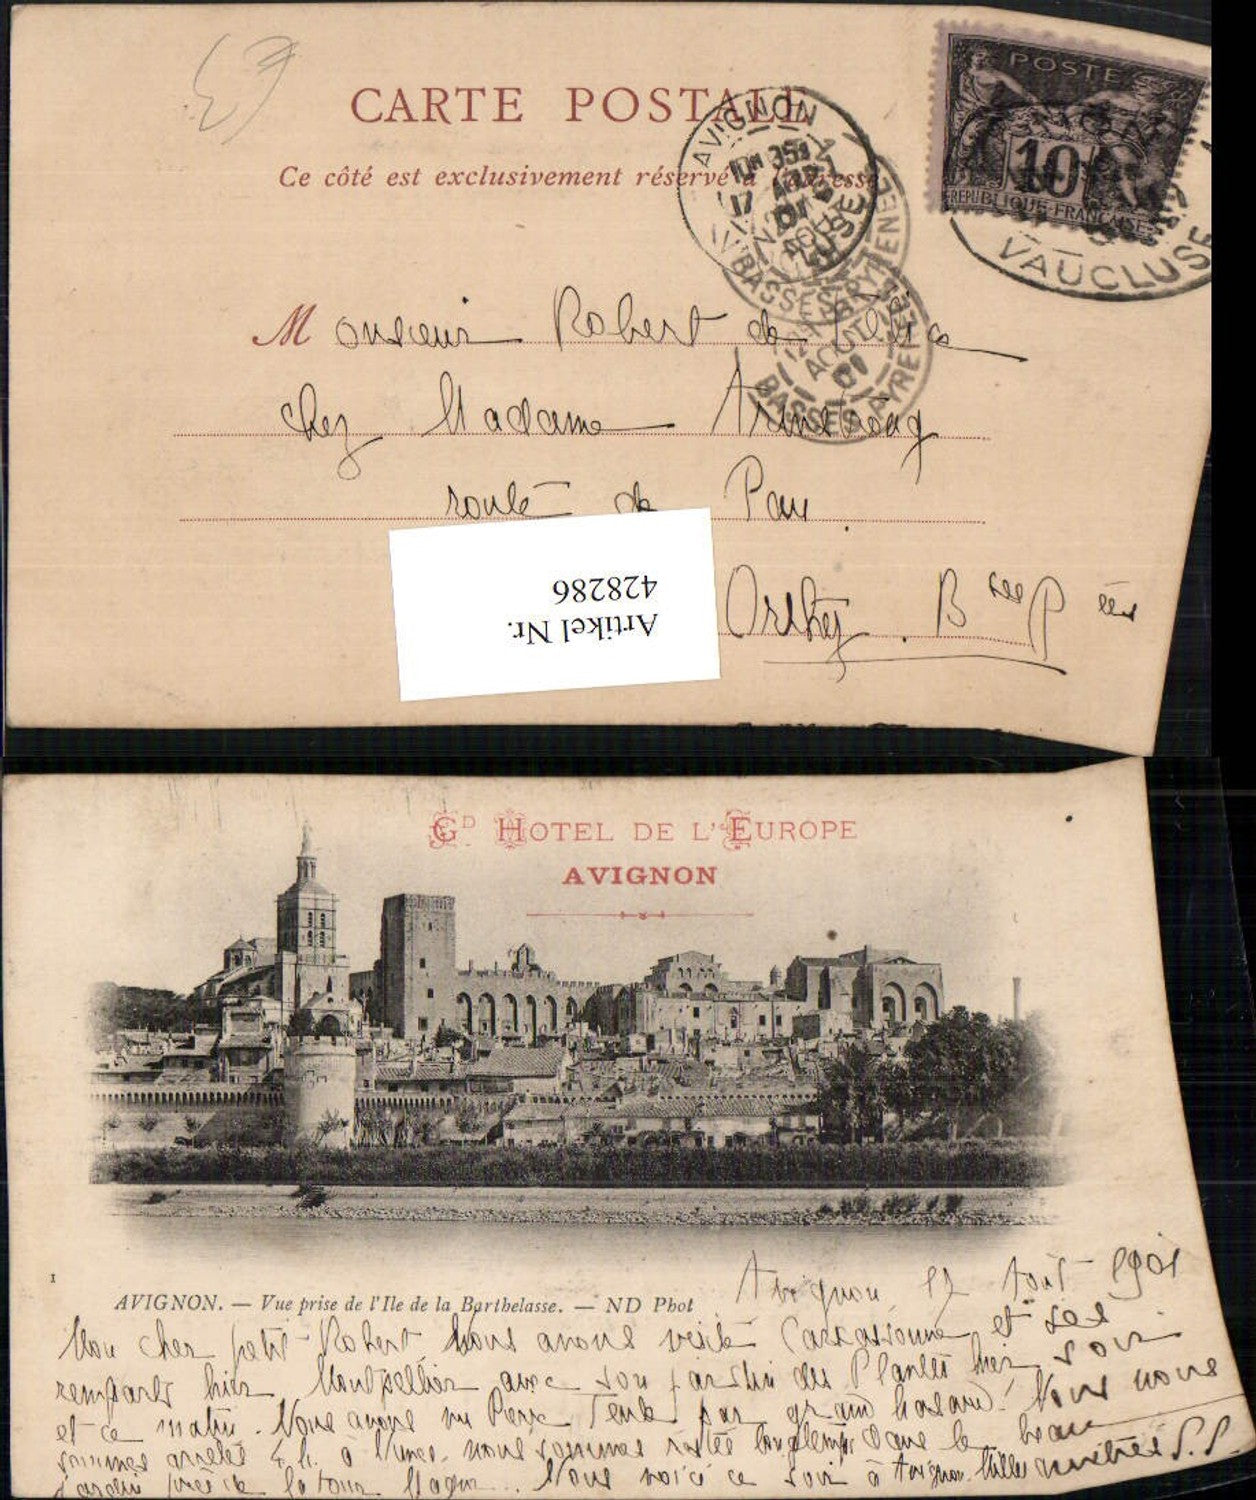 CARTE POSTALE
Ce côté est exclusivement réservé à l'adresse
AVIGNON
VAUCLUSE
BASSES PYRENEES
AOUT
01
BASSES PYRENEES
POSTES
10
REPUBLIQUE FRANCAISE
VAUCLUSE
Monsieur Robert de
chez Madame Armstrong
route de Pau
Orthez. Bses Pées
Artikel Nr.
428286
GD HOTEL DE L'EUROPE
AVIGNON
1
AVIGNON. — Vue prise de l'Ile de la Barthelasse. — ND Phot
Avignon, 17 Août 1901
Mon cher petit Robert, Nous avons visité Carcassonne et ses
remparts hier Montpellier avec son jardin des Plantes hier soir
et ce matin. Nous avons vu Pierre par grand hasard! Nous nous
sommes arrêtés 4 h. à Nimes. nous sommes restés longtemps dans le beau
jardin près de la tour Magne... Nous voici ce soir à Avignon. Mille amitiés